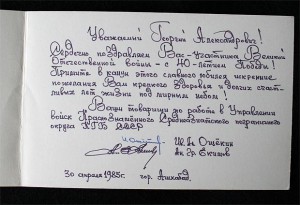 Уважаемый Георгий Александрович!
Сердечно поздравляем Вас - участника Великой
Отечественной войны - с 40-летием Победы!
Примите в канун этого славного юбилея искренние
пожелания Вам крепкого здоровья и долгих счаст-
ливых лет жизни под мирным небом!
Ваши товарищи по работе в Управлении
войск Краснознамённого Среднеазиатского пограничного
округа КГБ СССР
Ив. Ив.
30 апреля 1985г. гор. Ашхабад